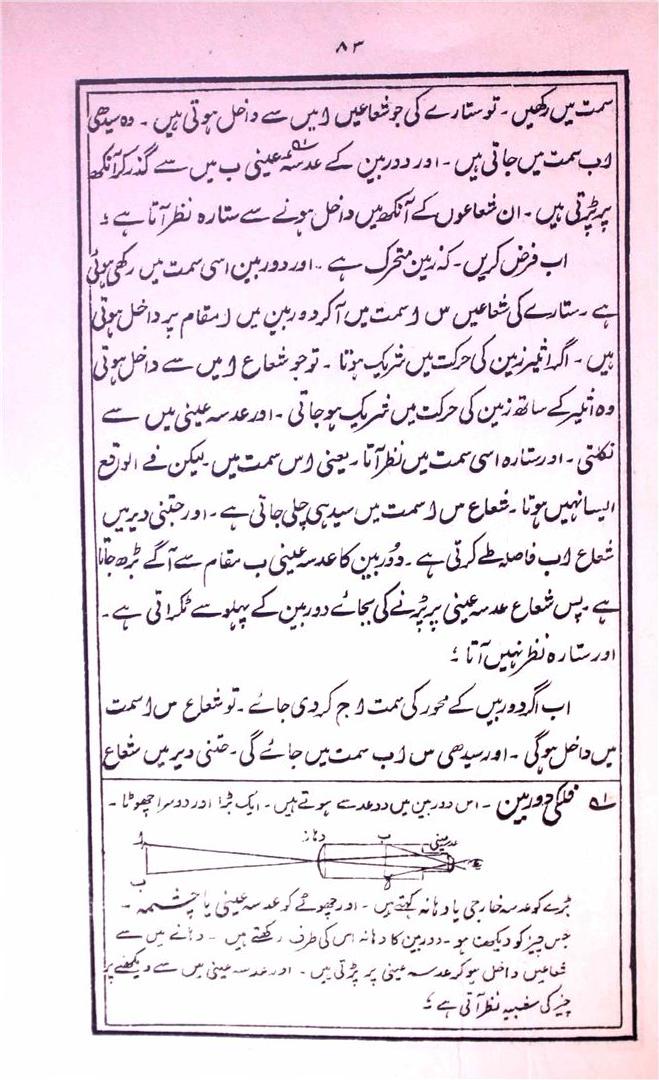 ۸۳
سمت میں رکھیں ۔ تو ستارے کی جو شعاعیں ا میں سے داخل ہوتی ہیں ۔ وہ سیدھی
ا ب سمت میں جاتی ہیں ۔ اور دوربین کے عدسہ عینی ب میں سے گذر کر آنکھ
پر پڑتی ہیں ۔ ان شعاعوں کے آنکھ میں داخل ہونے سے ستارہ نظر آتا ہے ؛
اب فرض کریں ۔ کہ زمین متحرک ہے ۔ اور دوربین اسی سمت میں رکھی ہوئی
ہے ۔ ستارے کی شعاعیں س ا سمت میں آکر دوربین میں ا مقام پر داخل ہوتی
ہیں ۔ اگر اثیر زمین کی حرکت میں شریک ہوتا ۔ تو جو شعاع ا میں سے داخل ہوتی
وہ اثیر کے ساتھ زمین کی حرکت میں شریک ہو جاتی ۔ اور عدسہ عینی میں سے
نکلتی ۔ اور ستارہ اسی سمت میں نظر آتا ۔ یعنی ا س سمت میں ۔ لیکن فے الواقع
ایسا نہیں ہوتا ۔ شعاع س ا سمت میں سیدہی چلی جاتی ہے ۔ اور جتنی دیر میں
شعاع ا ب فاصلہ طے کرتی ہے ۔ دوربین کا عدسہ عینی ب مقام سے آگے بڑھ جاتا
ہے ۔ پس شعاع عدسہ عینی پر پڑنے کی بجائے دوربین کے پہلو سے ٹکراتی ہے ۔
اور ستارہ نظر نہیں آتا ؛
اب اگر دوربیں کے محور کی سمت ا ج کر دی جائے ۔ تو شعاع س ا سمت
میں داخل ہوگی ۔ اور سیدھی س ا ب سمت میں جائے گی ۔ جتنی دیر میں شعاع
لہ فلکی دوربین ۔ اس دوربین میں دو عدسے ہوتے ہیں ۔ ایک بڑا اور دوسرا چھوٹا ۔
دہانہ ب عدسہ عینی
ا
ب
بڑے کو عدسہ خارجی یا دہانہ کہتے ہیں ۔ اور چھوٹے کو عدسہ عینی یا چشمہ ۔
جس چیز کو دیکھنا ہو ۔ دوربین کا دہانہ اس کی طرف رکھتے ہیں ۔ دہانے میں سے
شعاعیں داخل ہو کر عدسہ عینی پر پڑتی ہیں ۔ اور عدسہ عینی میں سے دیکھنے پر
چیز کی شبیہ نظر آتی ہے ؛